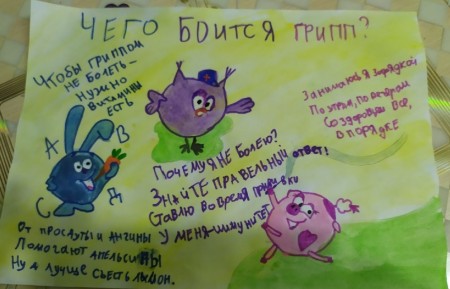 ЧЕГО БОИТСЯ ГРИПП?
Чтобы гриппом
не болеть –
нужно
витамины
есть
А В
С Д
Почему я не болею?
Знайте правельный ответ!
Ставлю во время прививки
У меня-иммунитет!
Занимаюсь я зарядкой
По утрам, по вечерам
Со здоровьем всё,
в порядке
От простуты и ангины
Помогают апельсины
Ну а лучше съесть лимон.